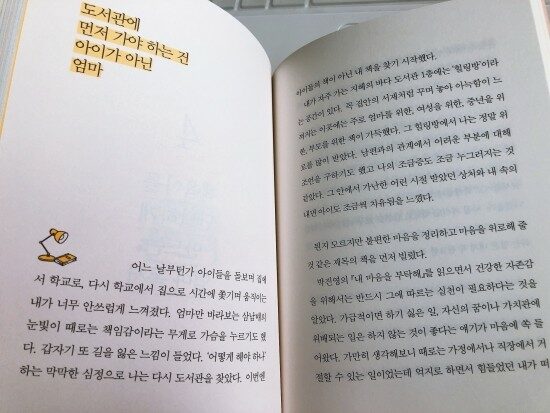 도서관에
먼저 가야 하는 건
아이가 아닌
엄마
어느 날부턴가 아이들을 돌보며 집에
서 학교로, 다시 학교에서 집으로 시간에 쫓기며 움직이는
내가 너무 안쓰럽게 느껴졌다. 엄마만 바라보는 삼남매의
눈빛이 때로는 책임감이라는 무게로 가슴을 누르기도 했
다. 갑자기 또 길을 잃은 느낌이 들었다. '어떻게 해야 하나'
하는 막막한 심정으로 나는 다시 도서관을 찾았다. 이번엔
아이들의 책이 아닌 내 책을 찾기 시작했다.
내가 자주 가는 지혜의 바다 도서관 1층에는 '힐링방'이라
는 공간이 있다. 꼭 집안의 서재처럼 꾸며 놓아 아늑함이 느
껴지는 이곳에는 주로 엄마를 위한, 여성을 위한, 중년을 위
한, 부모를 위한 책이 가득했다. 그 힐링방에서 나는 정말 위
로를 많이 받았다. 남편과의 관계에서 어려운 부분에 대해
조언을 구하기도 했고 나의 조급증도 조금 누그러지는 것
같았다. 그 안에서 가난한 어린 시절 받았던 상처와 내 속의
내면 아이도 조금씩 치유됨을 느꼈다.
뭔지 모르지만 불편한 마음을 정리하고 마음을 위로해 줄
것 같은 제목의 책을 먼저 빌렸다.
박진영의 『내 마음을 부탁해』를 읽으면서 건강한 자존감
을 위해서는 반드시 그에 따르는 실천이 필요하다는 것을
알았다. 가급적이면 하기 싫은 일, 자신의 꿈이나 가치관에
위배되는 일은 하지 않는 것이 좋다는 얘기가 마음에 쏙 들
어왔다. 가만히 생각해보니 때로는 가정에서나 직장에서 거
절할 수 있는 일이었는데 억지로 하면서 힘들었던 내가 떠